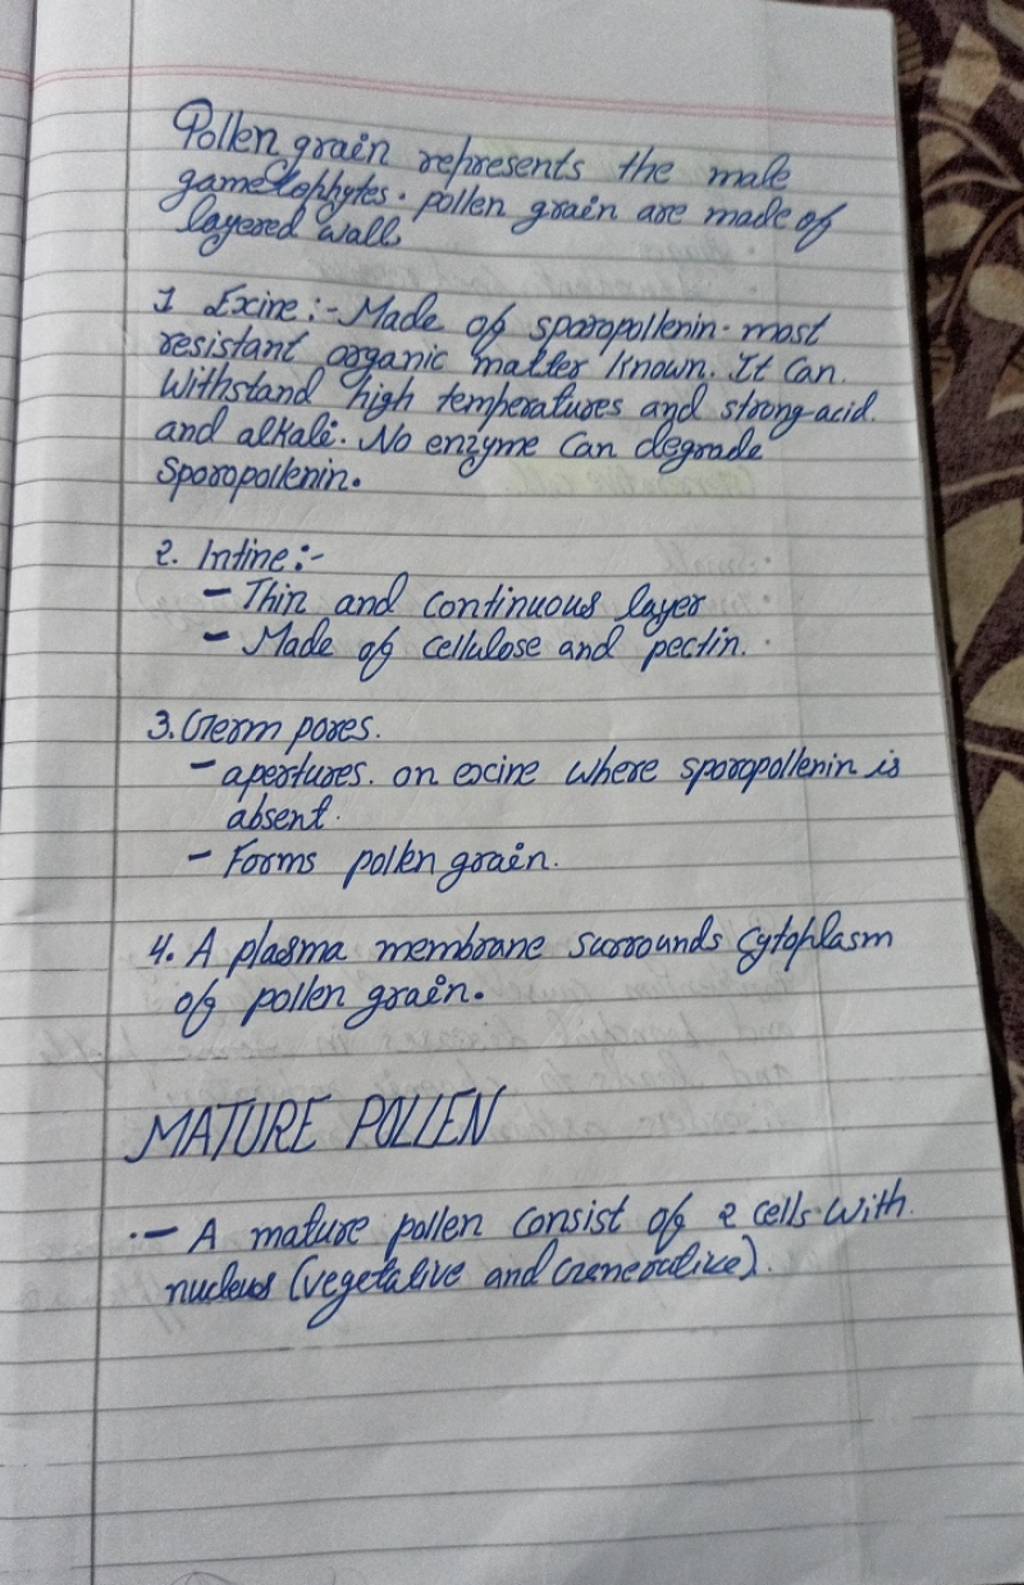 Pollen grain represents the male
gametophytes. pollen grain are made of
layered wall
1 Exine :- Made of sporopollenin - most
resistant organic matter known. It can.
Withstand high temperatures and strong acid.
and alkali. No enzyme can degrade
Sporopollenin.
2. Intine :-
- Thin and continuous layer
- Made of cellulose and pectin.
3. Germ pores.
- apertures. on exine where sporopollenin is
absent.
- Forms pollen grain.
4. A plasma membrane surrounds cytoplasm
of pollen grain.
MATURE POLLEN
.- A mature pollen consist of 2 cells with.
nucleus (vegetative and Generative).